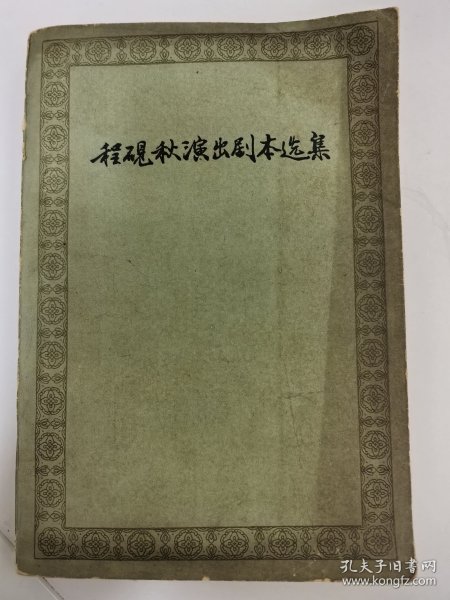 程砚秋演出剧本选集
孔夫子旧书网
www.kongfz.com